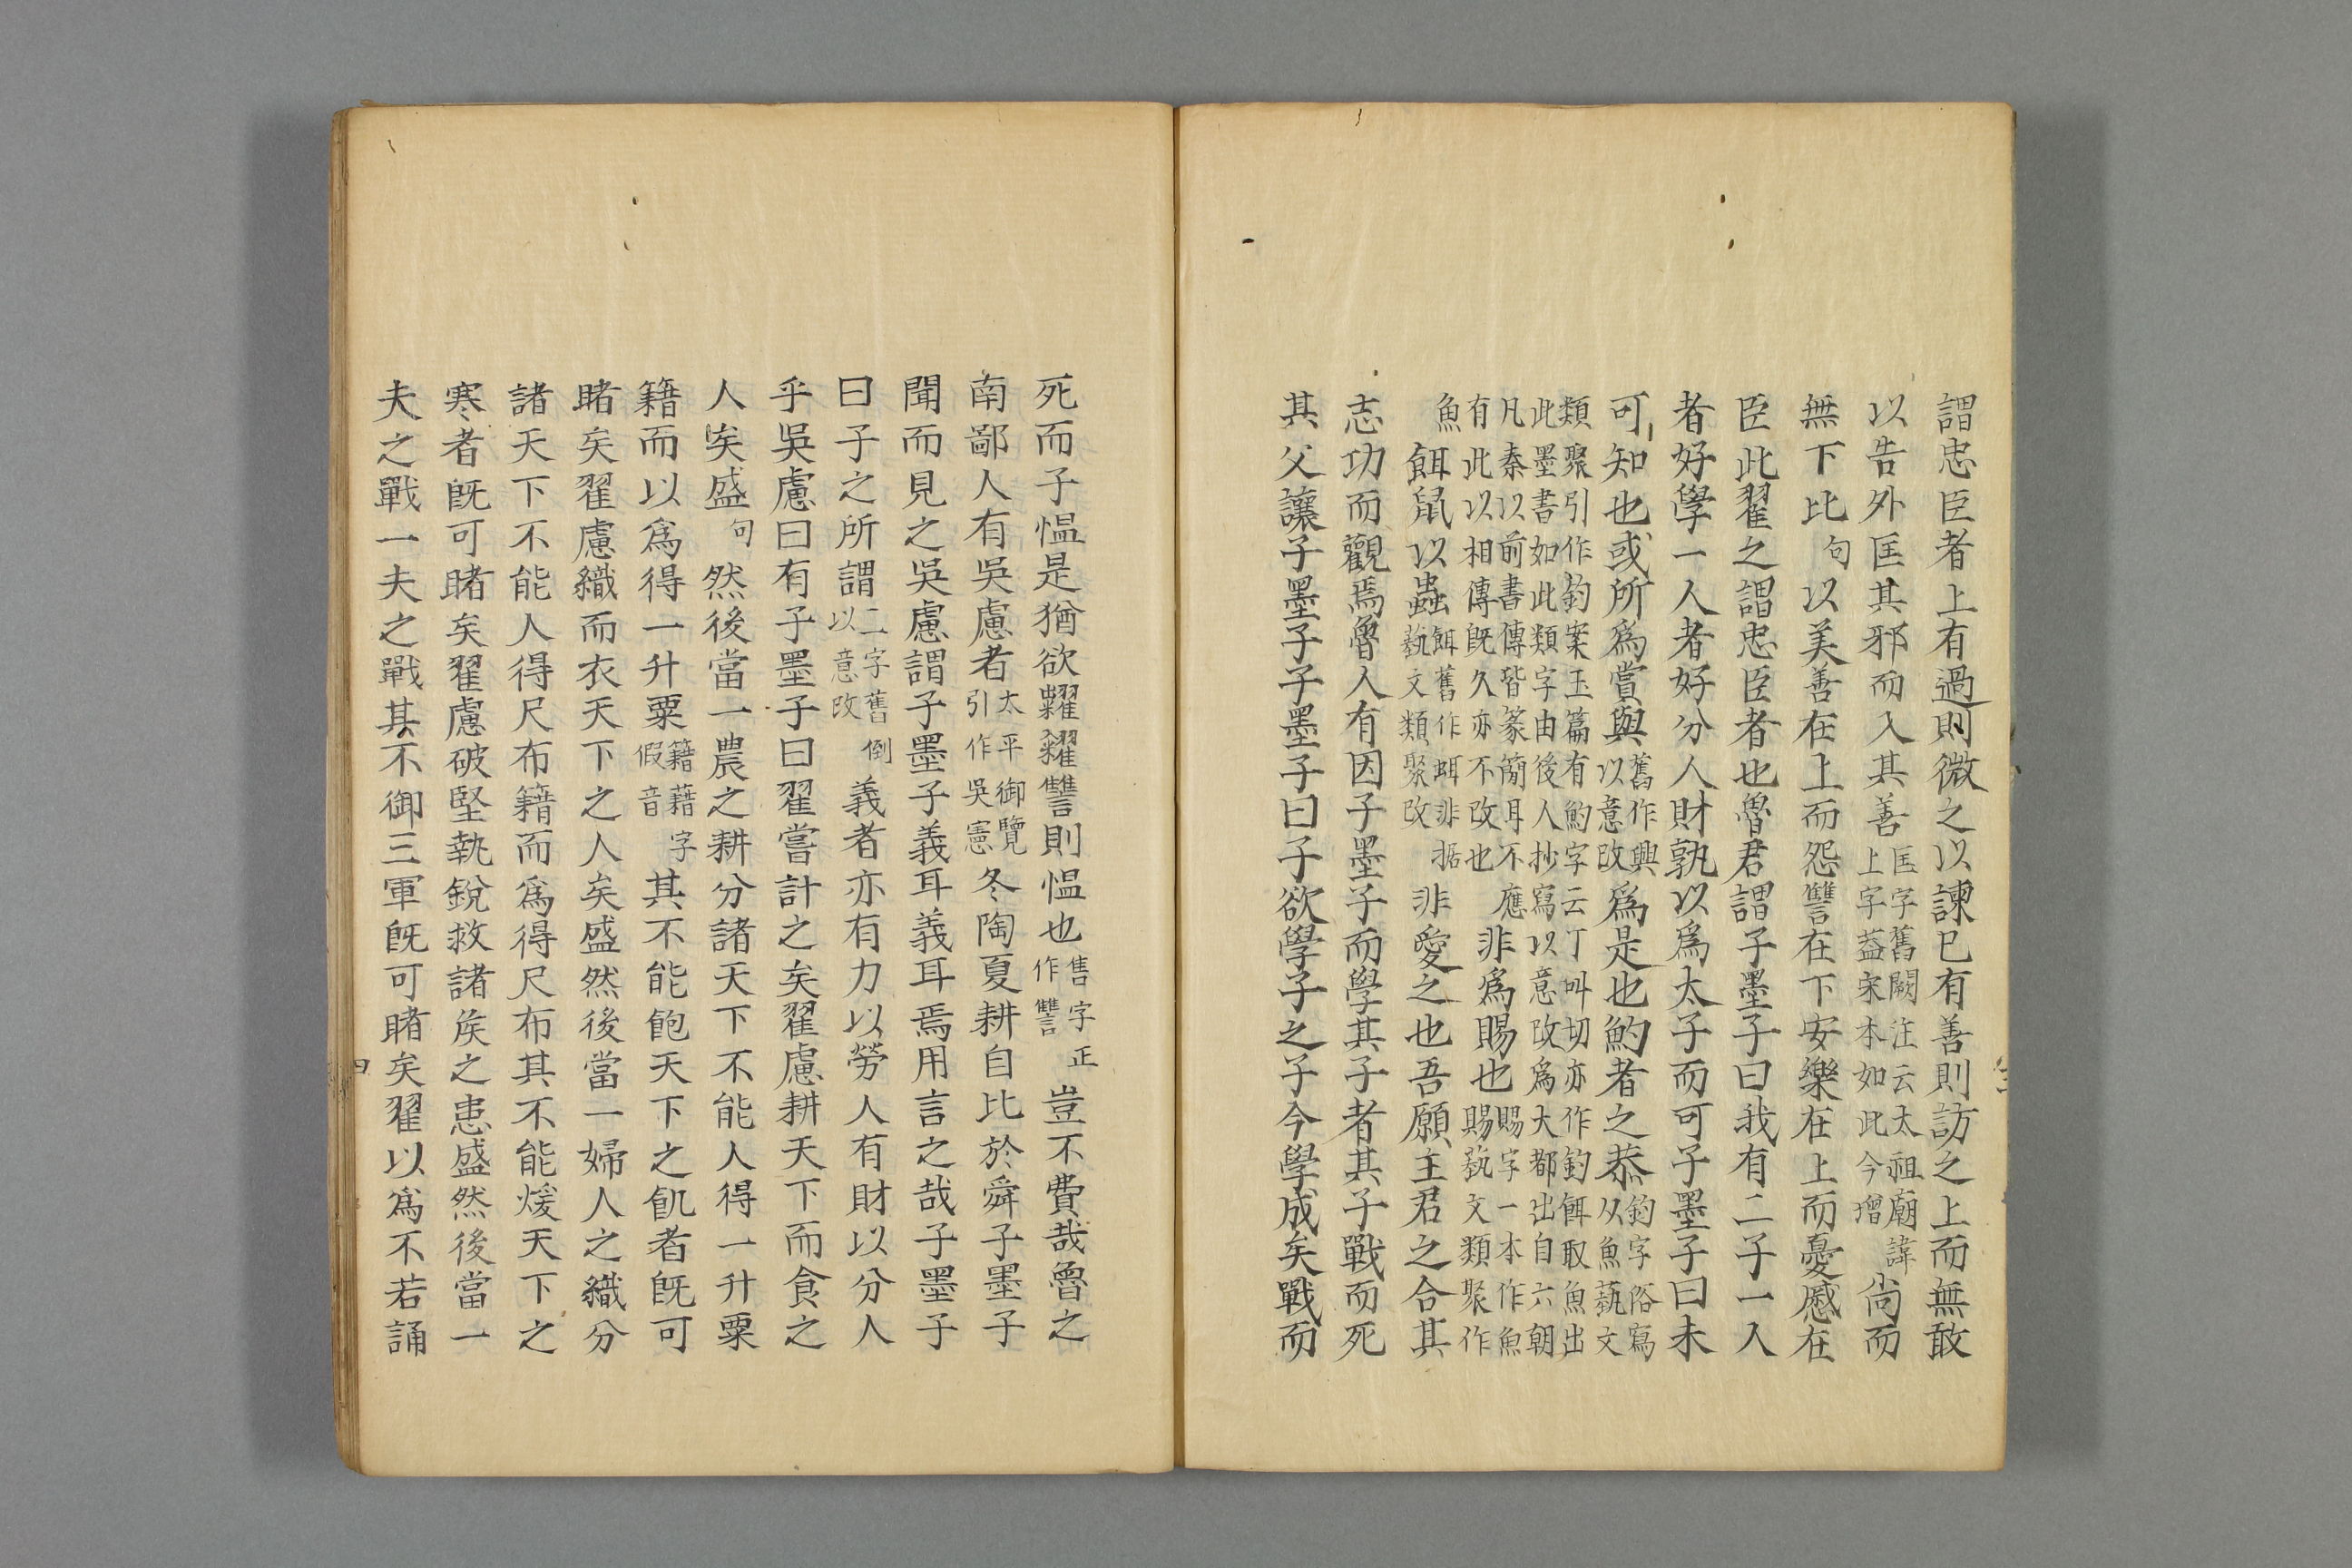 謂忠臣者上有過則微之以諫已有善則訪之上而無敢
以告外匡其邪而入其善匡字舊闕注云太祖廟諱上字葢宋本如此今增尚而
無下比句以美善在上而怨讐在下安樂在上而憂慼在
臣此翟之謂忠臣者也魯君謂子墨子曰我有二子一人
者好學一人者好分人財孰以爲太子而可子墨子曰未
可知也或所爲賞與舊作興以意改爲是也魡者之恭釣字俗寫从魚藝文
類聚引作釣案玉篇有魡字云丁叫切亦作釣餌取魚出
此墨書如此類字由後人抄寫以意改爲大都出自六朝
凡秦以前書傳皆篆簡耳不應
有此以相傳旣久亦不改也非爲賜也賜字一本作魚賜藝文類聚作
魚餌鼠以蟲餌舊作蚈非据藝文類聚改非愛之也吾願主君之合其
志功而觀焉魯人有因子墨子而學其子者其子戰而死
其父讓子墨子子墨子曰子欲學子之子今學成矣戰而
死而子慍是猶欲糶糴讐則慍也售字正作讐豈不費哉魯之
南鄙人有吳慮者太平御覽引作吳憲冬陶夏耕自比於舜子墨子
聞而見之吳慮謂子墨子義耳義耳焉用言之哉子墨子
曰子之所謂二字舊倒以意改義者亦有力以勞人有財以分人
乎吳慮曰有子墨子曰翟嘗計之矣翟慮耕天下而食之
人矣盛句然後當一農之耕分諸天下不能人得一升粟
籍而以爲得一升粟籍藉字假音其不能飽天下之飢者旣可
睹矣翟慮織而衣天下之人矣盛然後當一婦人之織分
諸天下不能人得尺布籍而爲得尺布其不能煖天下之
寒者旣可睹矣翟慮破堅執銳救諸矦之患盛然後當一
夫之戰一夫之戰其不御三軍旣可睹矣翟以爲不若誦